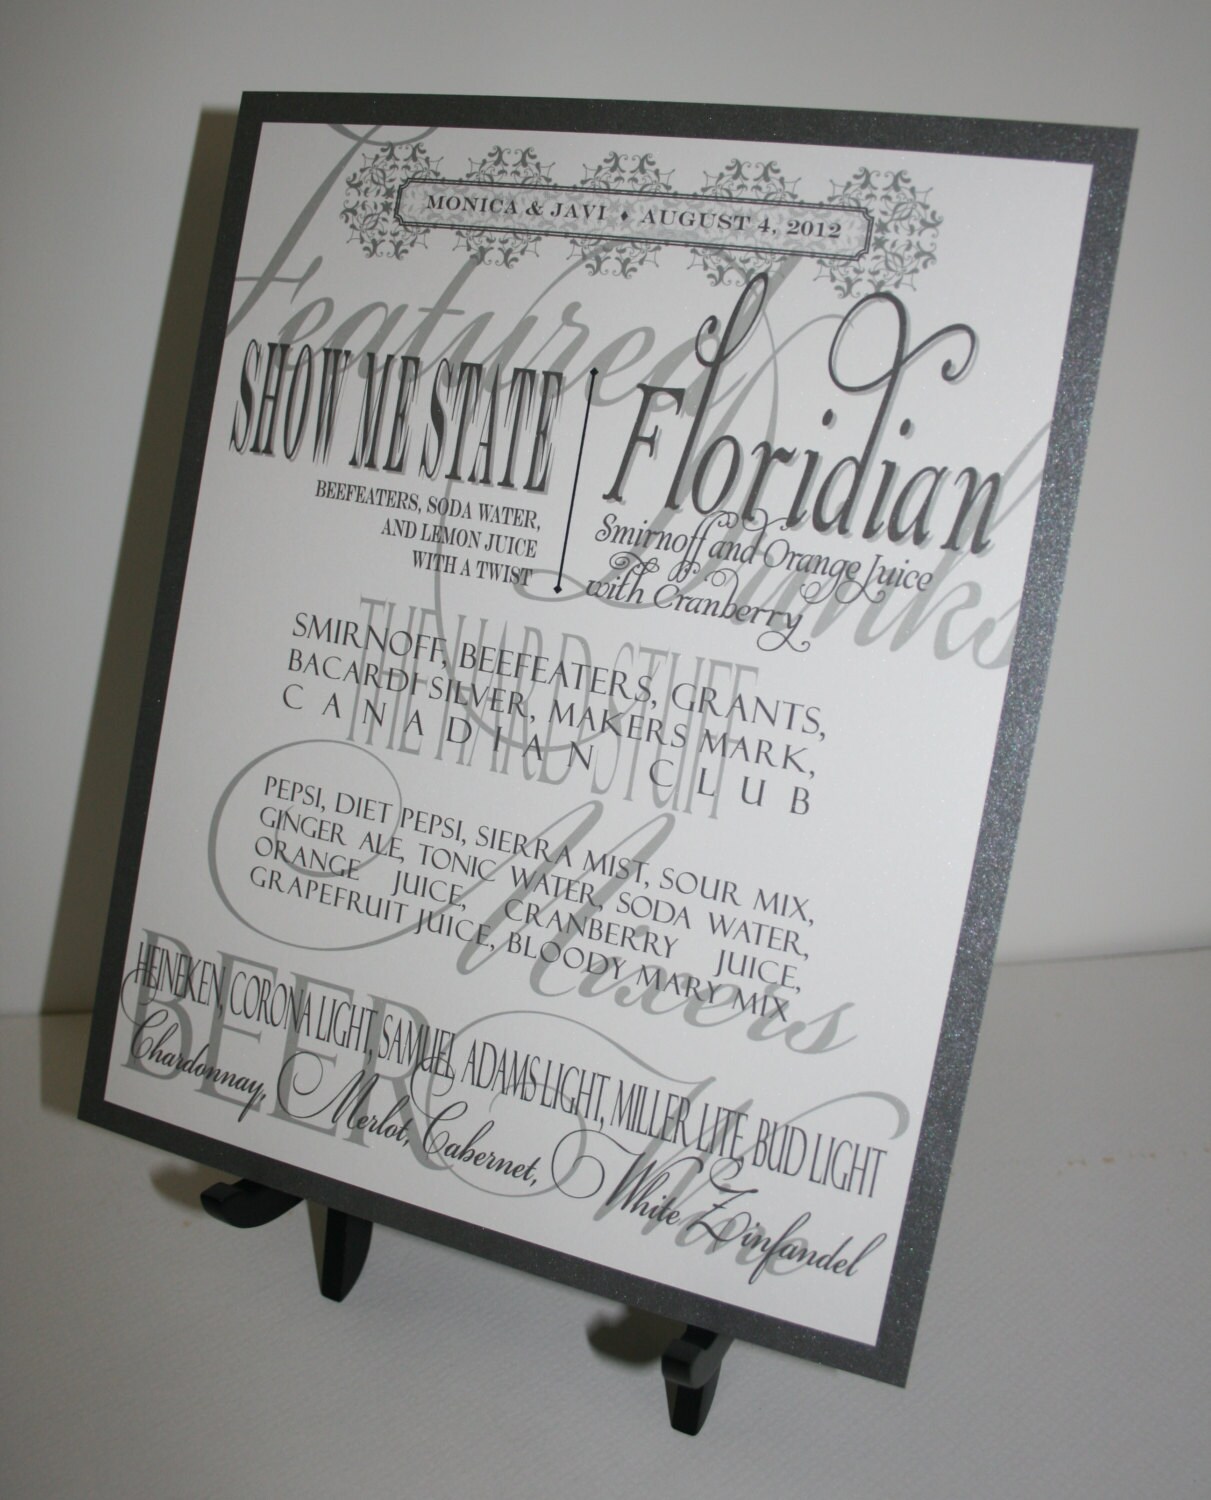 MONICA & JAVI ♦ AUGUST 4, 2012
Featured
Drinks
SHOW ME STATE
BEEFEATERS, SODA WATER,
AND LEMON JUICE
WITH A TWIST
Floridian
Smirnoff and Orange Juice
with Cranberry
THE HARD STUFF
SMIRNOFF, BEEFEATERS, GRANTS,
BACARDI SILVER, MAKERS MARK,
CANADIAN CLUB
Mixers
PEPSI, DIET PEPSI, SIERRA MIST, SOUR MIX,
GINGER ALE, TONIC WATER, SODA WATER,
ORANGE JUICE, CRANBERRY JUICE,
GRAPEFRUIT JUICE, BLOODY MARY MIX
BEER
HEINEKEN, CORONA LIGHT, SAMUEL ADAMS LIGHT, MILLER LITE, BUD LIGHT
Wine
Chardonnay, Merlot, Cabernet, White Zinfandel